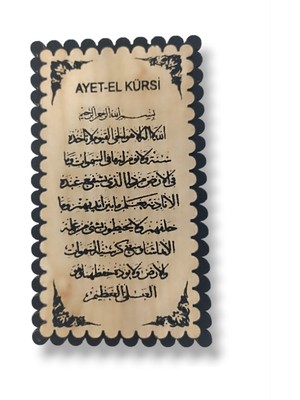 AYET-EL KÜRSİ
بسم الله الرحمن الرحيم
الله لا اله الا هو الحي القيوم لا تاخذه
سنة ولا نوم له ما في السموات وما
في الارض من ذا الذي يشفع عنده
الا باذنه يعلم ما بين ايديهم وما
خلفهم ولا يحيطون بشئ من علمه
الا بما شاء وسع كرسيه السموات
والارض ولا يؤده حفظهما وهو
العلي العظيم